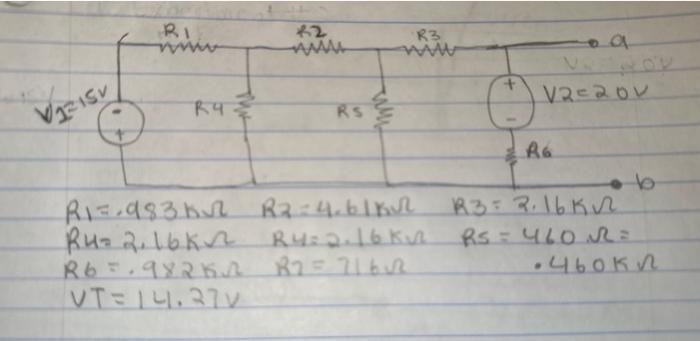 R1 R2 R3
a
V1=15V - + R4 R5 + - V2=20V
R6
b
R1=.983KΩ R2=4.61KΩ R3=2.16KΩ
R4=2.16KΩ R4=2.16KΩ R5=460Ω=
R6=.982KΩ R7=716Ω .460KΩ
VT=14.27V